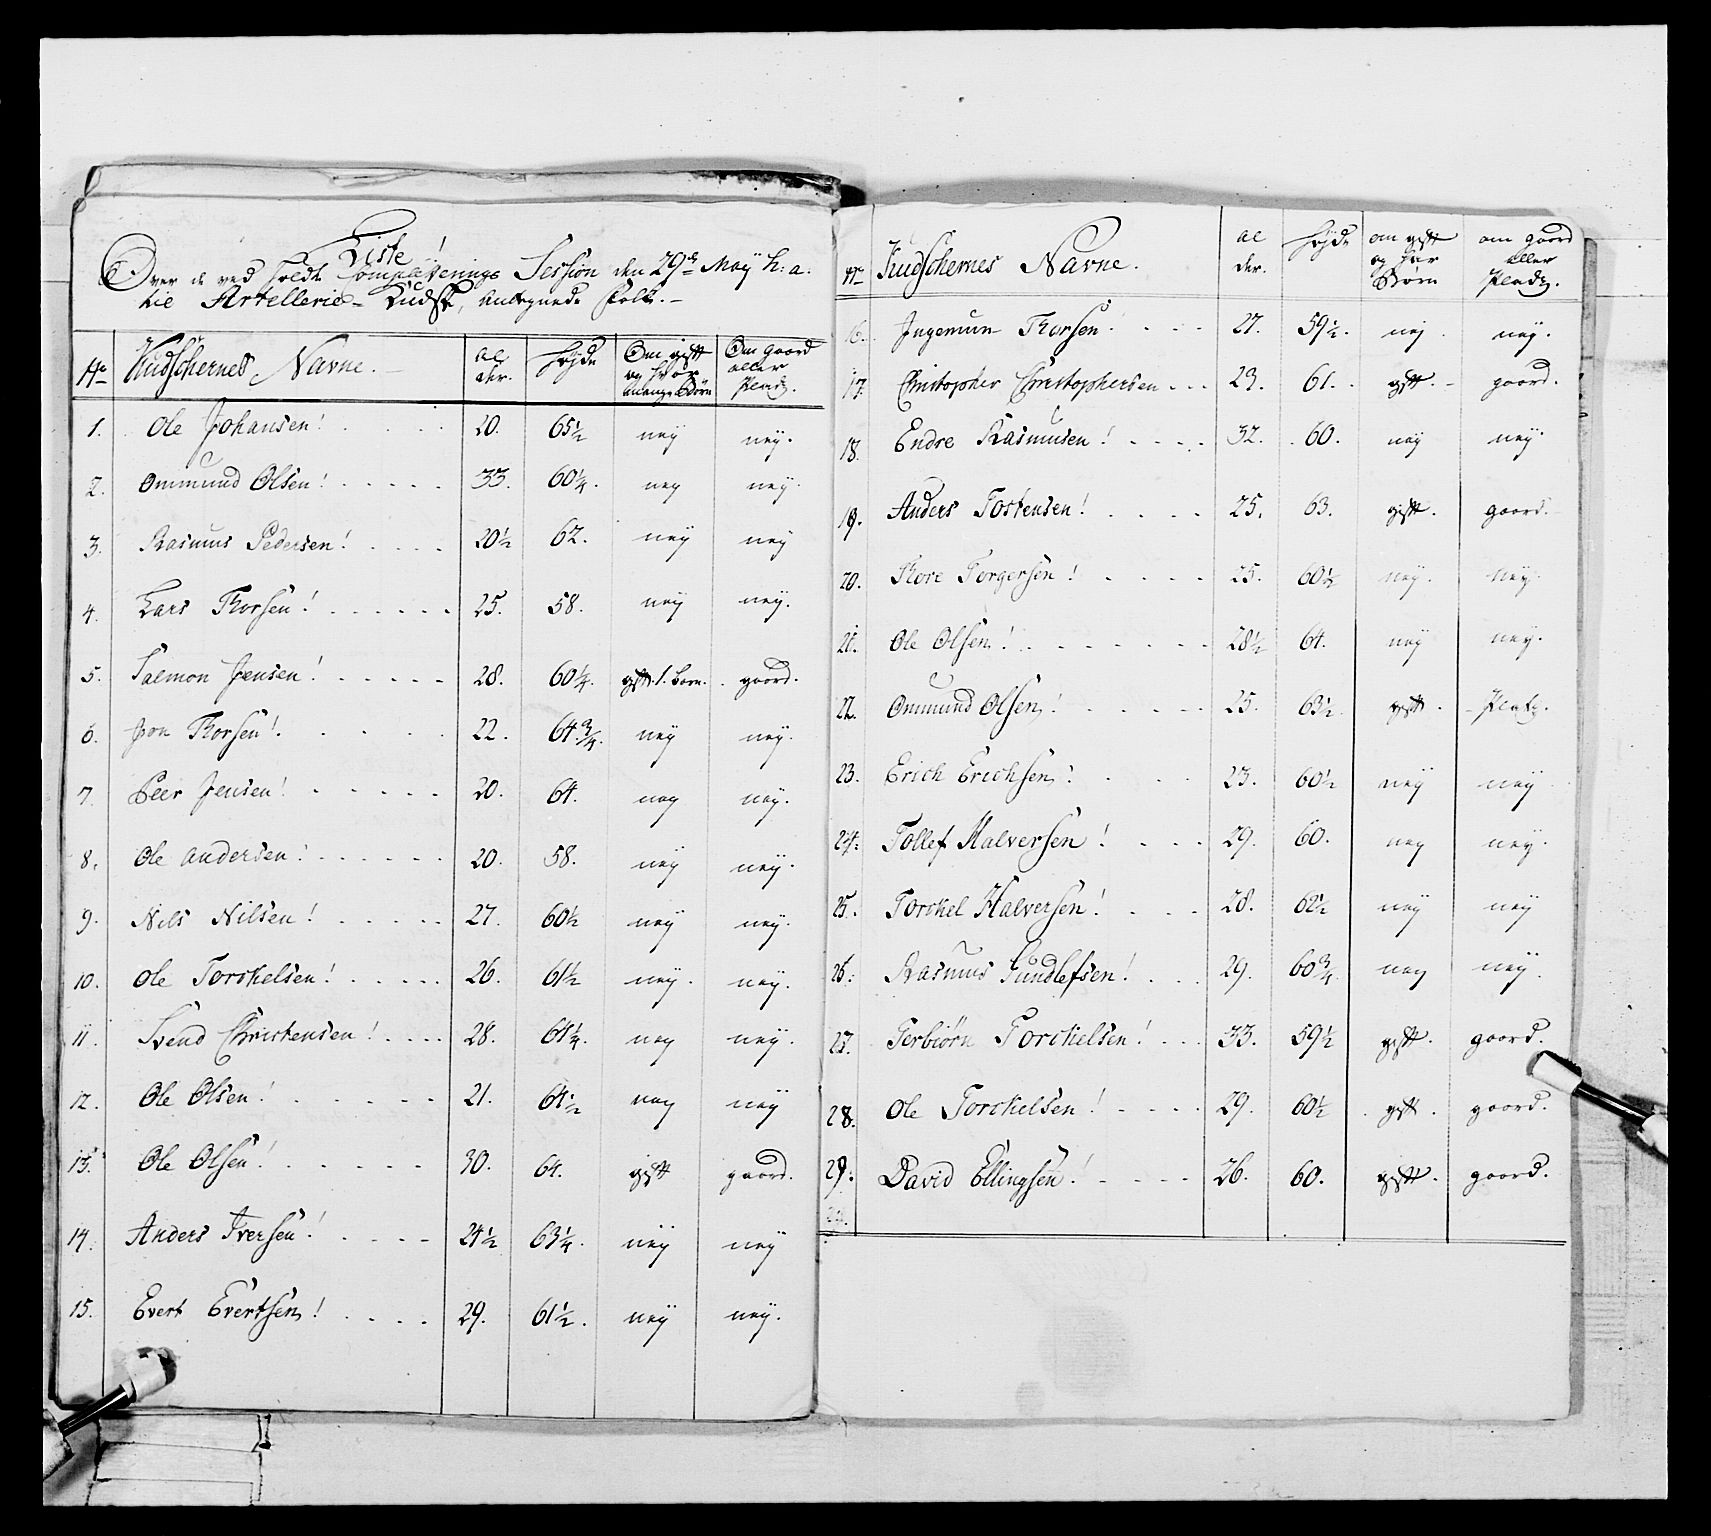 Liste!
Over de ved holdte Completerings Session den 29de Maÿ h: a:
til Artellerie-Kudske, antegnede Folk.
No Kudschernes Navne. Alder. Højde Om gift og hvor mange Børn Om gaard eller Plads.
1. Ole Johansen! 20. 65½ neÿ neÿ.
2. Ommund Olsen! 33. 60¼. neÿ neÿ.
3. Rasmus Pedersen! 20½ 62. neÿ neÿ
4. Lars Thorsen! 25. 58. neÿ neÿ.
5. Salmon Jensen! 28. 60¼. gift. 1. barn. gaard.
6. Jon Thorsen! 22. 64¾. neÿ neÿ.
7. Peer Jensen! 20. 64. neÿ neÿ.
8. Ole Andersen! 20. 58. neÿ neÿ.
9. Nils Nilsen! 27. 60½ neÿ neÿ.
10. Ole Torckelsen! 26. 61½ neÿ. neÿ.
11. Svend Christensen! 28. 61¼. neÿ neÿ.
12. Ole Olsen! 21. 61½ neÿ neÿ
13. Ole Olsen! 30. 64. gift gaard.
14. Anders Iversen! 24½ 63¼. neÿ neÿ
15. Evert Evertsen! 29. 61½. neÿ neÿ.
No Kudschernes Navne. Alder. Højde om gift og har Børn om gaard eller Plads.
16. Ingemun Thorsen! 27. 59½. neÿ. neÿ.
17. Christopher Christophersen 23. 61. gift. gaard.
18. Endre Rasmusen! 32. 60. neÿ neÿ.
19. Anders Tostensen! 25. 63. gift. gaard.
20. Thore Torgersen! 25. 60½ neÿ. neÿ.
21. Ole Olsen! 28½ 64. neÿ neÿ.
22. Ommund Olsen! 25. 63½ gift. Plads.
23. Erich Erichsen! 23. 60½ neÿ neÿ
24. Tollef Halversen! 29. 60. neÿ neÿ.
25. Torckel Halversen! 28. 62½ neÿ neÿ
26. Rasmus Gundlefsen! 29. 60¾ neÿ neÿ.
27. Terbiørn Torckelsen! 33. 59½ gift. gaard.
28. Ole Torckelsen! 29. 60½ gift. gaard.
29. David Ellingsen! 26. 60. gift. gaard.